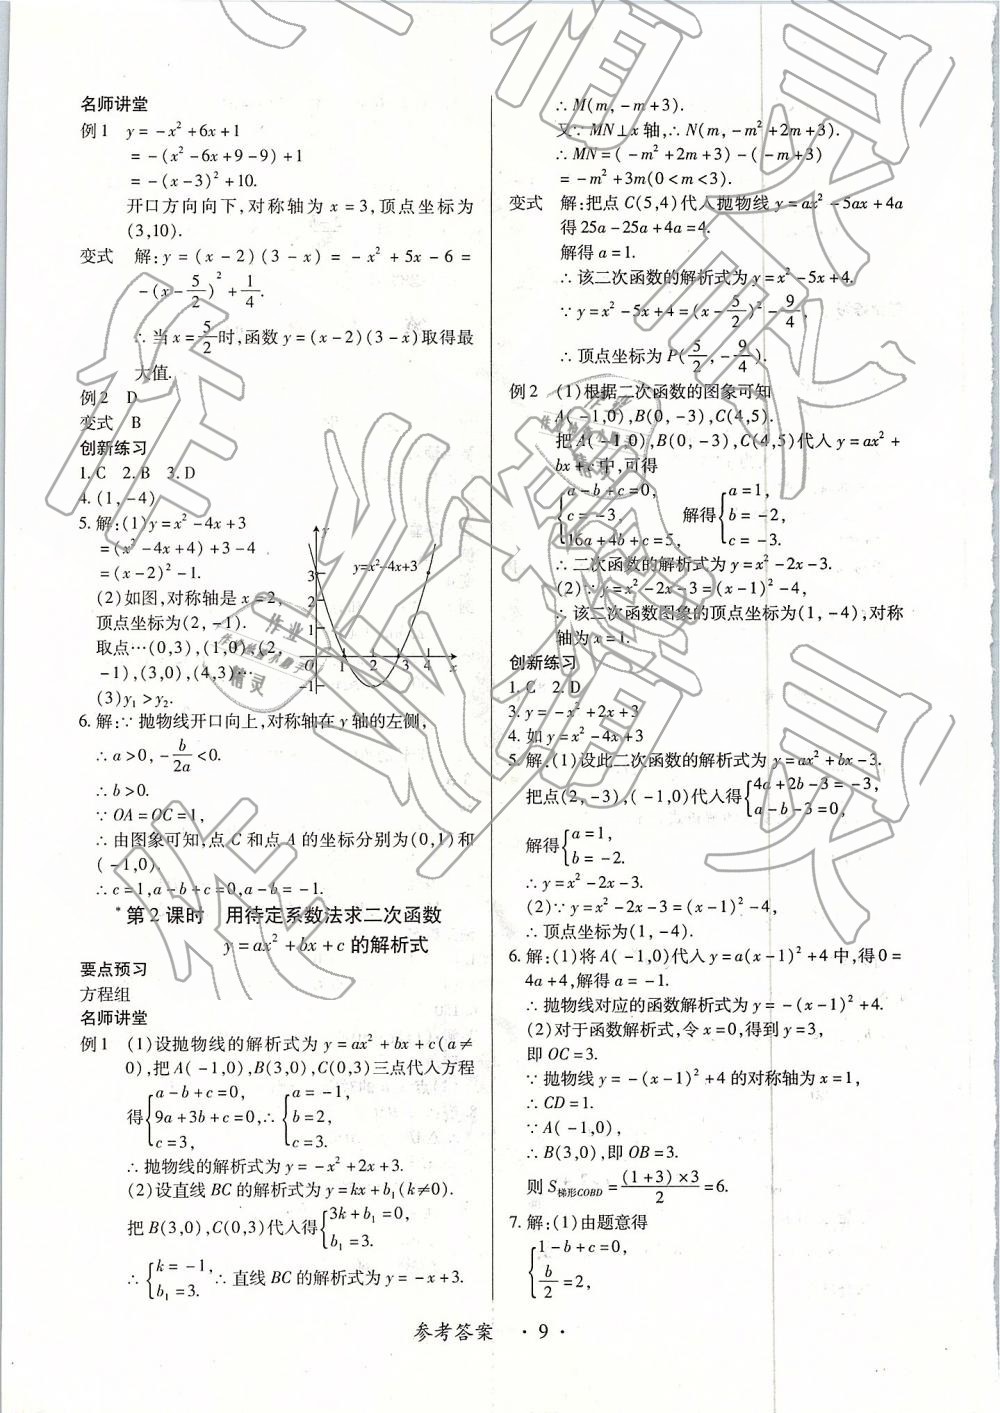 名师讲堂
例1 y=-x²+6x+1
=-(x²-6x+9-9)+1
=-(x-3)²+10.
开口方向向下,对称轴为x=3,顶点坐标为
(3,10).
变式 解:y=(x-2)(3-x)=-x²+5x-6=
-(x-5/2)²+1/4.
∴当x=5/2时,函数y=(x-2)(3-x)取得最
大值.
例2 D
变式 B
创新练习
1.C 2.B 3.D
4.(1,-4)
5.解:(1)y=x²-4x+3
=(x²-4x+4)+3-4
=(x-2)²-1.
(2)如图,对称轴是x=2,
顶点坐标为(2,-1).
取点…(0,3),(1,0),(2,
-1),(3,0),(4,3)…
(3)y₁>y₂.
y
y=x²-4x+3
3
2
1
O 1 2 3 4 x
-1
6.解:∵抛物线开口向上,对称轴在y轴的左侧,
∴a>0,-b/2a<0.
∴b>0.
∵OA=OC=1,
∴由图象可知,点C和点A的坐标分别为(0,1)和
(-1,0).
∴c=1,a-b+c=0,a-b=-1.
*第2课时 用待定系数法求二次函数
y=ax²+bx+c的解析式
要点预习
方程组
名师讲堂
例1 (1)设抛物线的解析式为y=ax²+bx+c(a≠
0),把A(-1,0),B(3,0),C(0,3)三点代入方程
得{a-b+c=0, 9a+3b+c=0, c=3, ∴{a=-1, b=2, c=3.
∴抛物线的解析式为y=-x²+2x+3.
(2)设直线BC的解析式为y=kx+b₁(k≠0).
把B(3,0),C(0,3)代入得{3k+b₁=0, b₁=3.
∴{k=-1, b₁=3. ∴直线BC的解析式为y=-x+3.
∴M(m,-m+3).
又∵MN⊥x轴,∴N(m,-m²+2m+3).
∴MN=(-m²+2m+3)-(-m+3)
=-m²+3m(0<m<3).
变式 解:把点C(5,4)代入抛物线y=ax²-5ax+4a
得25a-25a+4a=4.
解得a=1.
∴该二次函数的解析式为y=x²-5x+4.
∵y=x²-5x+4=(x-5/2)²-9/4,
∴顶点坐标为P(5/2,-9/4).
例2 (1)根据二次函数的图象可知
A(-1,0),B(0,-3),C(4,5).
把A(-1,0),B(0,-3),C(4,5)代入y=ax²+
bx+c中,可得
{a-b+c=0, c=-3, 16a+4b+c=5, 解得{a=1, b=-2, c=-3.
∴二次函数的解析式为y=x²-2x-3.
(2)∵y=x²-2x-3=(x-1)²-4,
∴该二次函数图象的顶点坐标为(1,-4),对称
轴为x=1.
创新练习
1.C 2.D
3.y=-x²+2x+3
4.如y=x²-4x+3
5.解:(1)设此二次函数的解析式为y=ax²+bx-3.
把点(2,-3),(-1,0)代入得{4a+2b-3=-3, a-b-3=0,
解得{a=1, b=-2.
∴y=x²-2x-3.
(2)∵y=x²-2x-3=(x-1)²-4,
∴顶点坐标为(1,-4).
6.(1)将A(-1,0)代入y=a(x-1)²+4中,得0=
4a+4,解得a=-1.
∴抛物线对应的函数解析式为y=-(x-1)²+4.
(2)对于函数解析式,令x=0,得到y=3,
即OC=3.
∵抛物线y=-(x-1)²+4的对称轴为x=1,
∴CD=1.
∵A(-1,0),
∴B(3,0),即OB=3.
则S梯形COBD=(1+3)×3/2=6.
7.解:(1)由题意得
{1-b+c=0, b/2=2,
参考答案 ·9·
作业
精灵